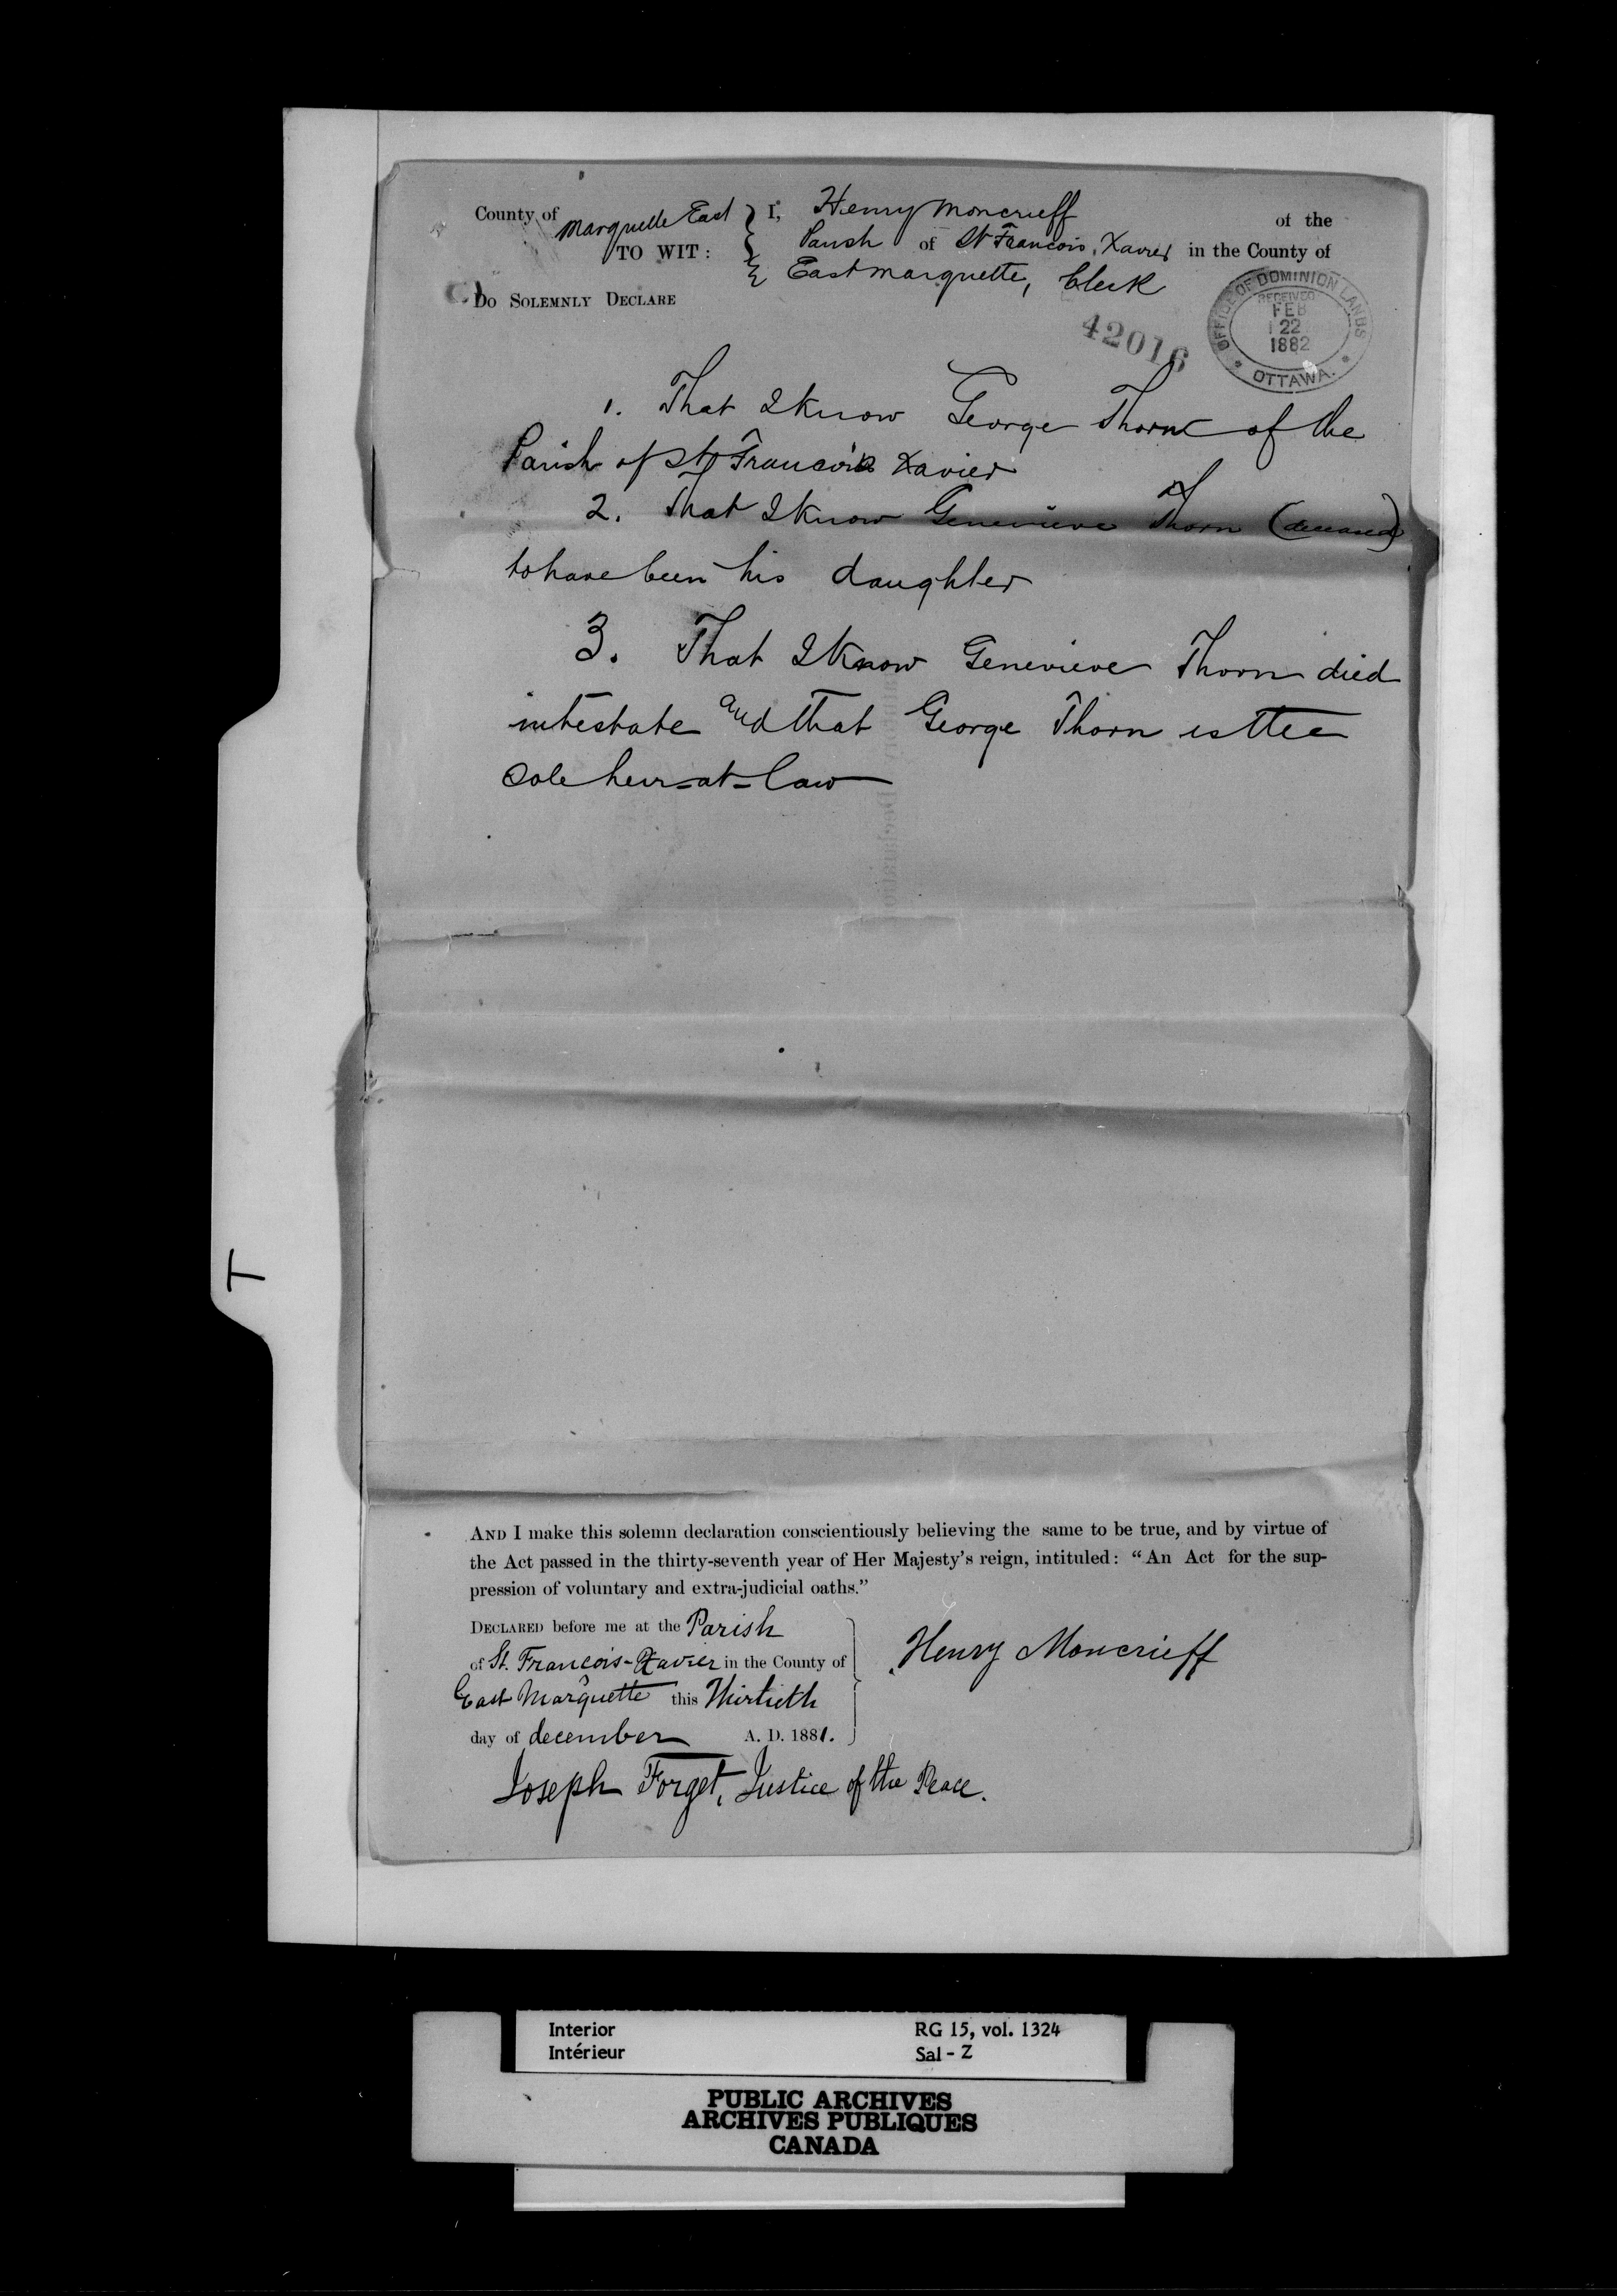 County of Marquette East } I, Henry Moncrieff of the
TO WIT: Parish of St Francois, Xavier in the County of
East Marquette, Clerk
DO SOLEMNLY DECLARE
OFFICE OF DOMINION LANDS
RECEIVED
FEB
22
1882
OTTAWA.
42016
1. That I know George Thorn of the
Parish of St Francois Xavier
2. That I know Genevieve Thorn (deceased)
to have been his daughter
3. That I know Genevieve Thorn died
intestate and that George Thorn is the
sole heir-at-law
T
AND I make this solemn declaration conscientiously believing the same to be true, and by virtue of
the Act passed in the thirty-seventh year of Her Majesty's reign, intituled: "An Act for the sup-
pression of voluntary and extra-judicial oaths."
DECLARED before me at the Parish
of St. François-Xavier in the County of
East Marquette this Thirtieth
day of december A. D. 1881.
Henry Moncrieff
Joseph Forget, Justice of the Peace.
Interior RG 15, vol. 1324
Intérieur Sal - Z
PUBLIC ARCHIVES
ARCHIVES PUBLIQUES
CANADA